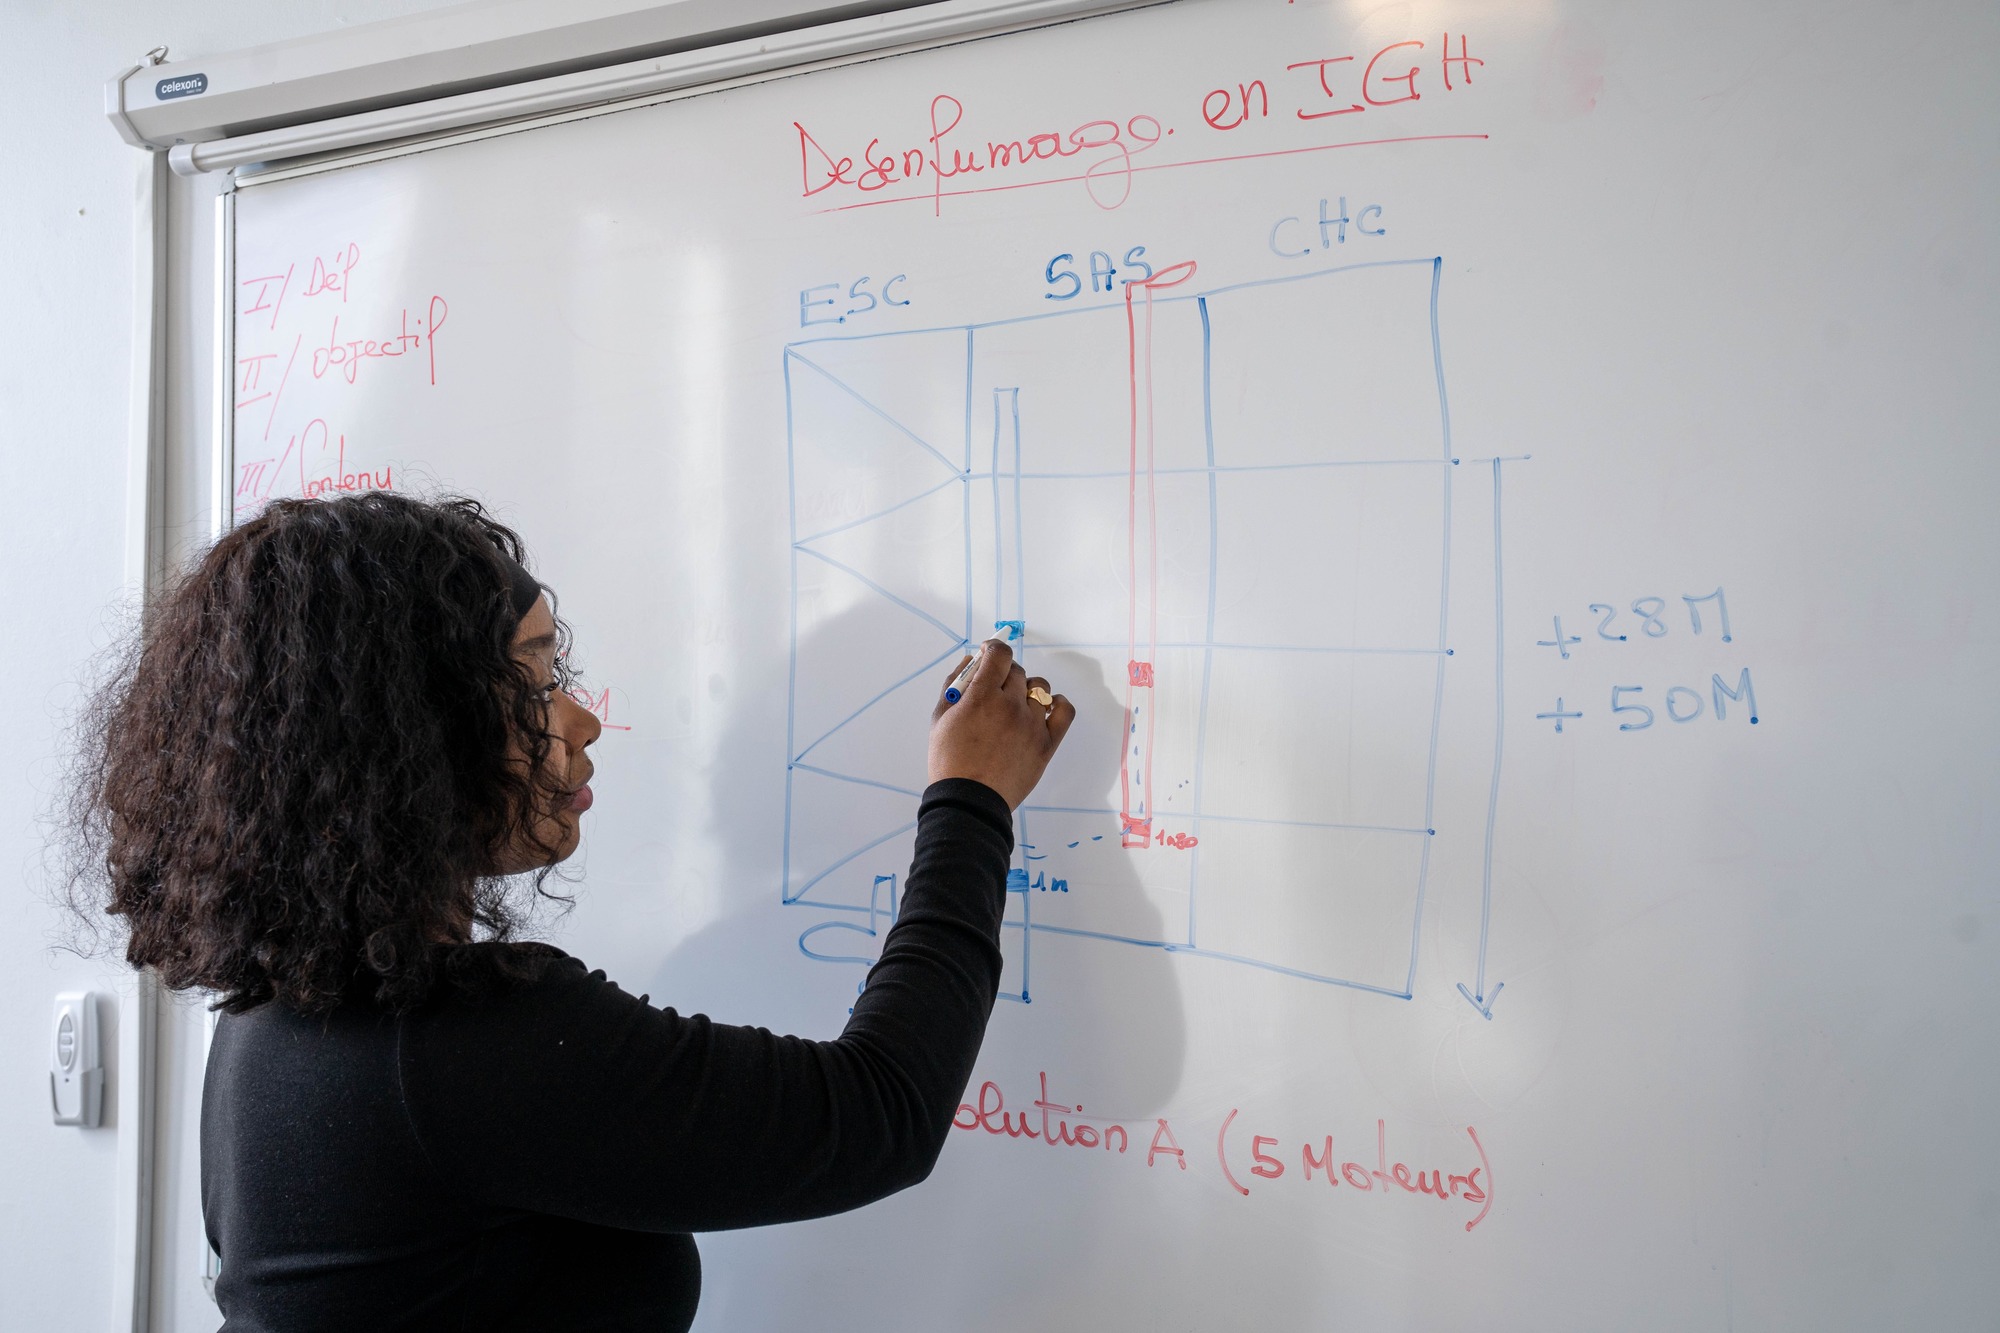 celexon
Desenfumage en IGH
I/ Déf
II/ objectif
III/ Contenu
ESC SAS CHC
+28M
+50M
1m80
1m
olution A (5 Moteurs)